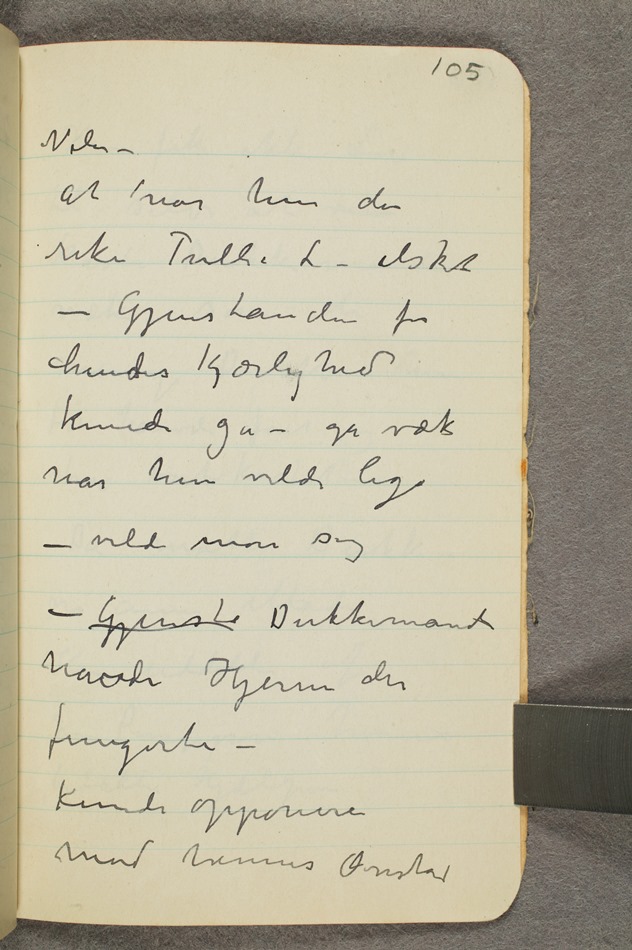 105
at når hun den
rike Trulla L – elsket
– Gjenstanden for
hendes Kjærlighed
kunde gå – gå væk
når hun vilde lege
– vilde man sig
– Gjenste Dukkemand
havde Hjerne der
fungerte –
kunde opponere
mod hennes Ønsker